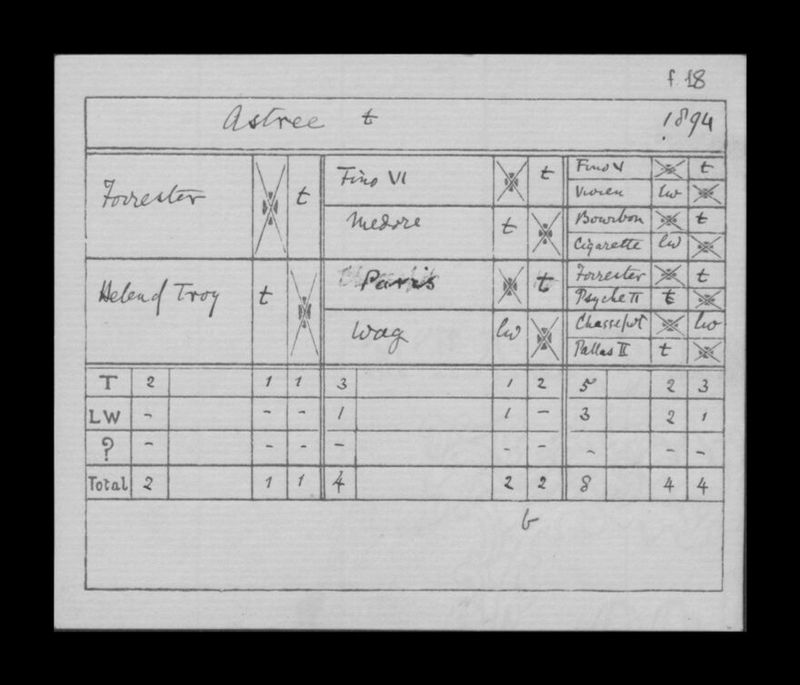 f 18
Astree t 1894
Forrester t
Fino VI t
Fino V t
Vivien lw
Medore t
Bourbon t
Cigarette lw
Helen of Troy t
Paris t
Forrester t
Psyche II t
Wag lw
Chassepot lw
Pallas II t
T 2 1 1 3 1 2 5 2 3
LW - - - 1 1 - 3 2 1
? - - - - - - - - -
Total 2 1 1 4 2 2 8 4 4
b